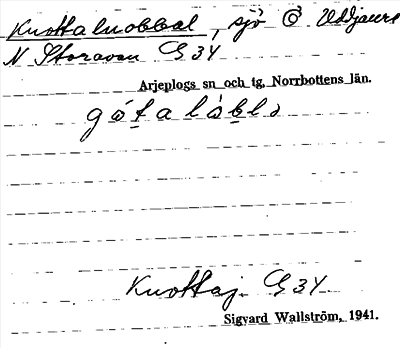 Knottaluobbal, sjö Ö Uddjaure
N Storavan G 34
Arjeplogs sn och tg, Norrbottens län.
Knottaj. G 34
Sigvard Wallström, 1941.